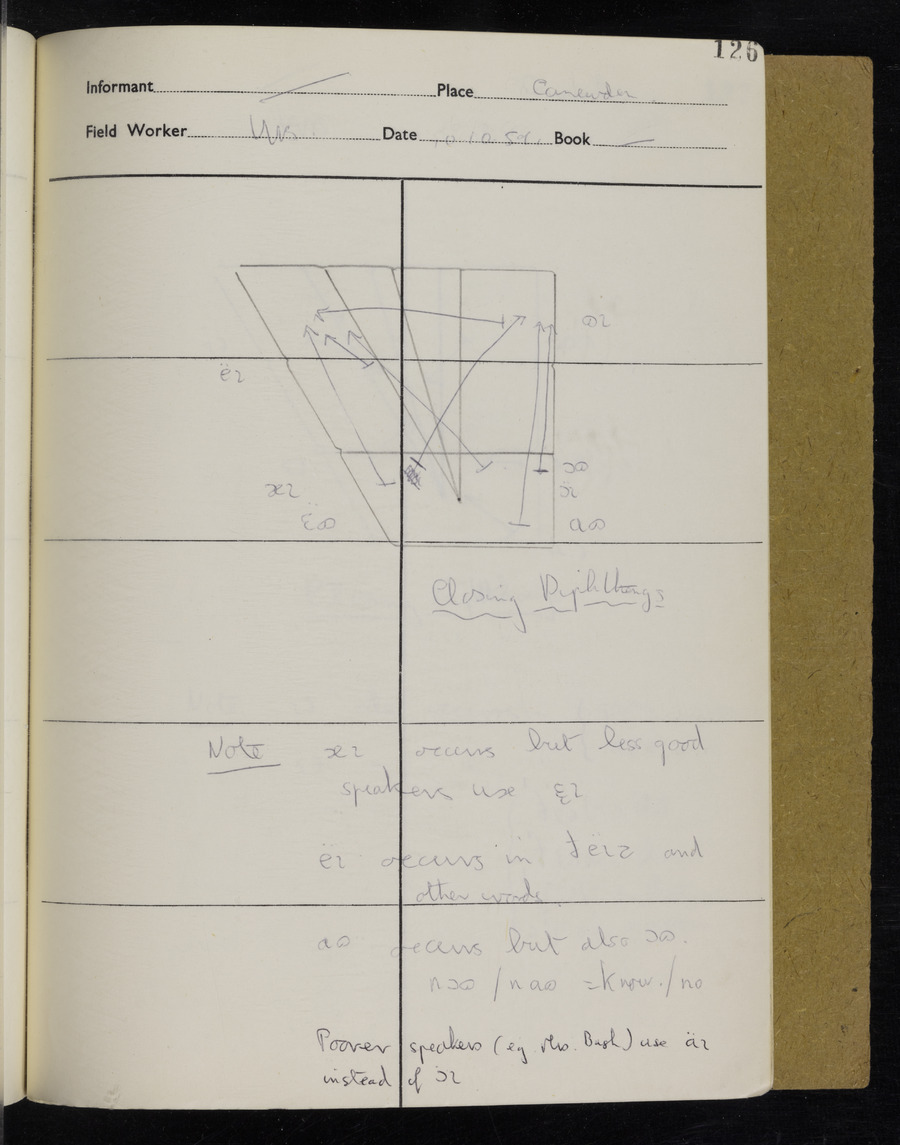 126
Informant Place Canewdon
Field Worker Date 10.10.59. Book
ɷɪ
ëɪ
ɔɷ
æɪ ɔ̈ɪ
ɛ̈ɷ ɑɷ
Closing Diphthongs
Note æɪ occurs but less good
speakers use ɛ̞ɪ
ëɪ occurs in and
other words.
ɑɷ occurs but also ɔɷ.
nɔɷ / nɑɷ = know. / no
Poorer speakers (eg Mrs. Bush) use äɪ
instead of ɔ̈ɪ